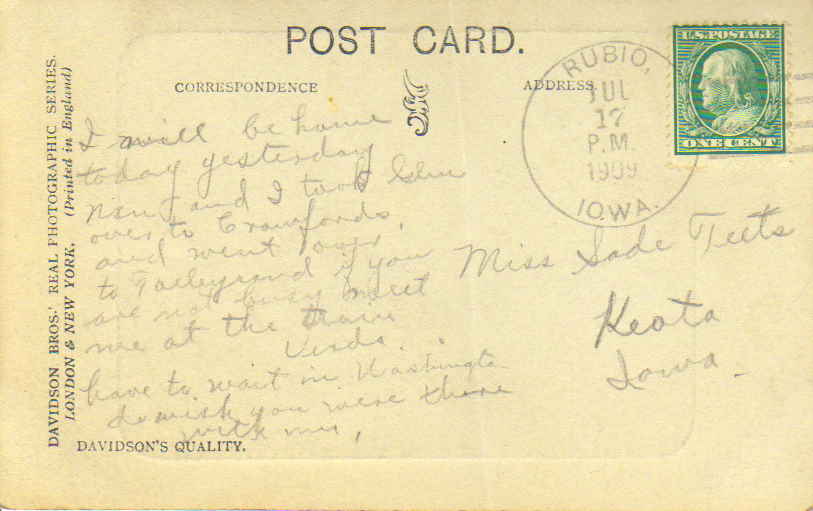 POST CARD.
CORRESPONDENCE
ADDRESS.
DAVIDSON BROS.' REAL PHOTOGRAPHIC SERIES.
LONDON & NEW YORK. (Printed in England)
RUBIO,
JUL
17
P.M.
1909
IOWA.
U.S. POSTAGE
ONE CENT
I will be home
today yesterday
and I took
over to Crawfords,
and went over
to Talleyrand if you
are not busy meet
me at the train
have to wait in Washington
I wish you were there
with me,
Miss Sade Teets
Keota
Iowa
DAVIDSON'S QUALITY.